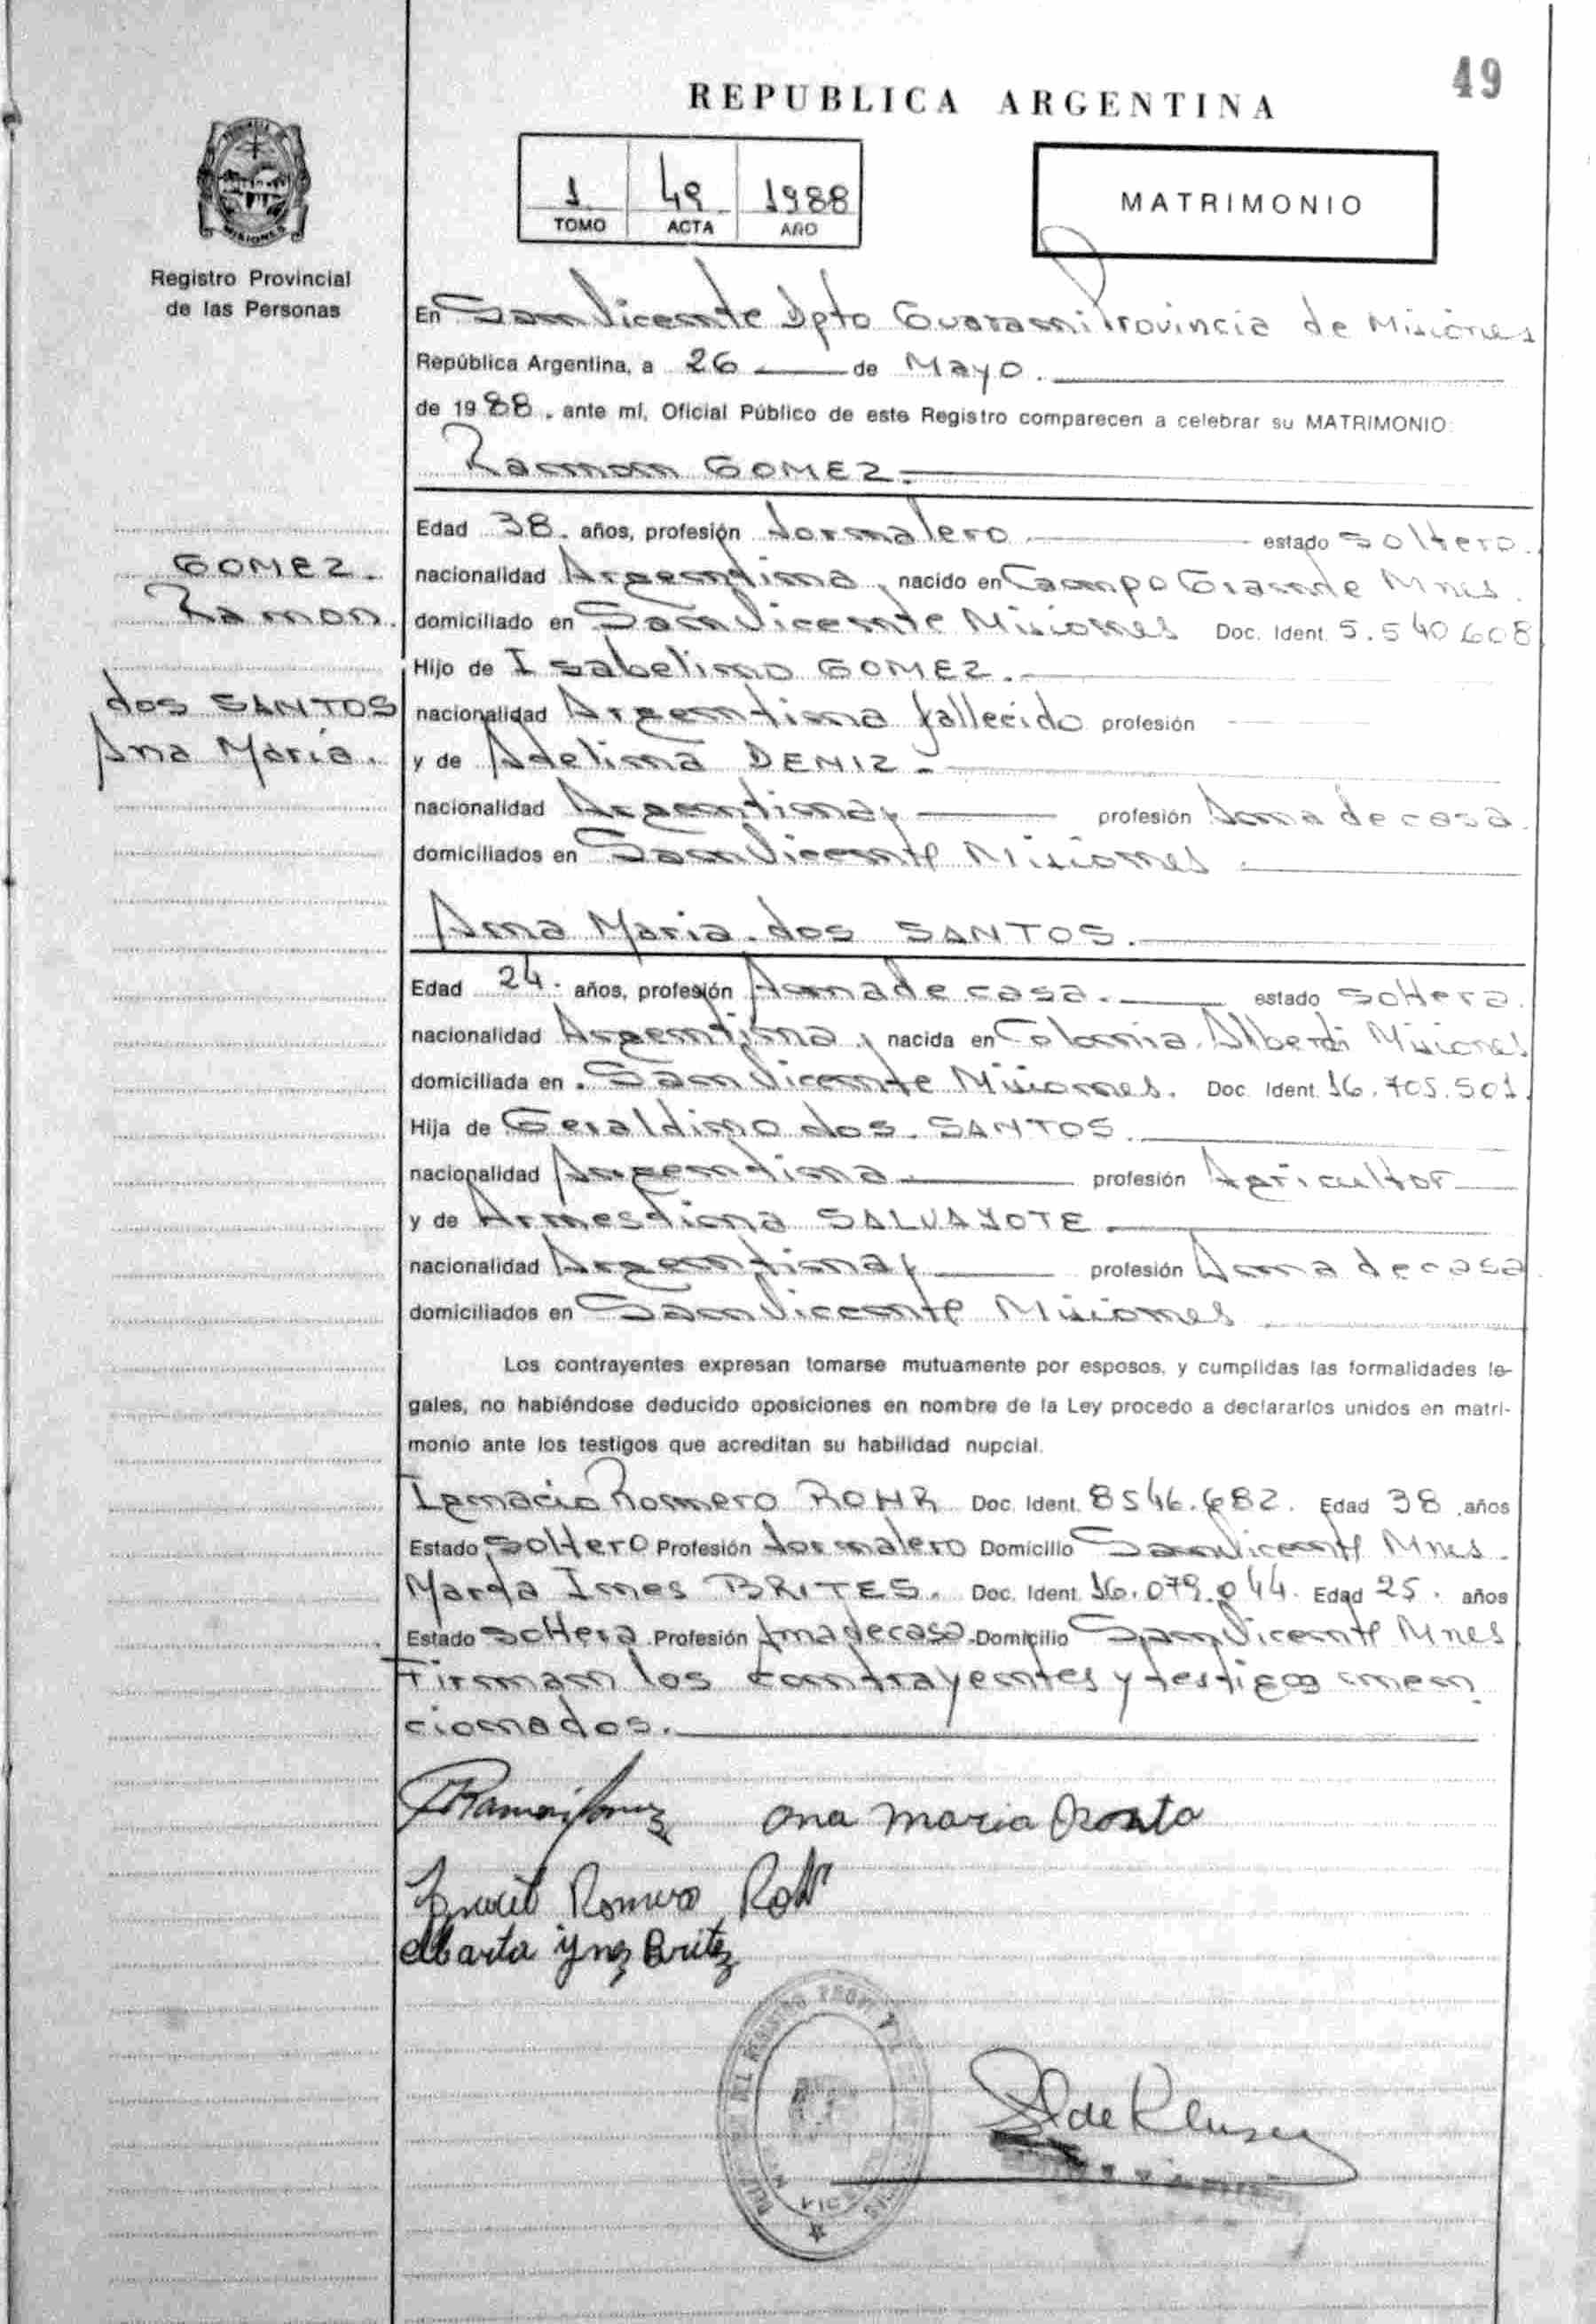 49
REPUBLICA ARGENTINA
1 49 1988
TOMO ACTA AÑO
MATRIMONIO
MISIONES
Registro Provincial
de las Personas
En San Vicente Dpto Guarani Provincia de Misiones
República Argentina, a 26 de Mayo.
de 1988. ante mí, Oficial Público de este Registro comparecen a celebrar su MATRIMONIO:
Ramon GOMEZ.
Edad 38. años, profesión Jornalero estado soltero.
nacionalidad Argentina, nacido en Campo Grande Mnes.
domiciliado en San Vicente Misiones Doc. Ident. 5.540.608
Hijo de Isabelino GOMEZ.
nacionalidad Argentina fallecido profesión
y de Adelina DENIZ.
nacionalidad Argentina, profesión Ama de casa.
domiciliados en San Vicente Misiones.
GOMEZ.
Ramon.
dos SANTOS
Ana Maria.
Ana Maria dos SANTOS.
Edad 24. años, profesión Ama de casa. estado soltera.
nacionalidad Argentina, nacida en Colonia Alberdi Misiones
domiciliada en San Vicente Misiones. Doc. Ident. 16.705.501.
Hija de Geraldino dos SANTOS.
nacionalidad Argentina profesión Agricultor
y de Arnestina SALVAJOTE.
nacionalidad Argentina, profesión Ama de casa
domiciliados en San Vicente Misiones
Los contrayentes expresan tomarse mutuamente por esposos, y cumplidas las formalidades le-
gales, no habiéndose deducido oposiciones en nombre de la Ley procedo a declararlos unidos en matri-
monio ante los testigos que acreditan su habilidad nupcial.
Ignacio Romero ROHR Doc. Ident. 8546.682. Edad 38 años
Estado soltero Profesión Jornalero Domicilio San Vicente Mnes.
Marta Ines BRITES. Doc. Ident. 16.079.044. Edad 25. años
Estado soltera Profesión Ama de casa. Domicilio San Vicente Mnes
Firman los contrayentes y testigos men
cionados.
Ramon Gomez Ana Maria
Romero Rohr
Marta Ynez Britez